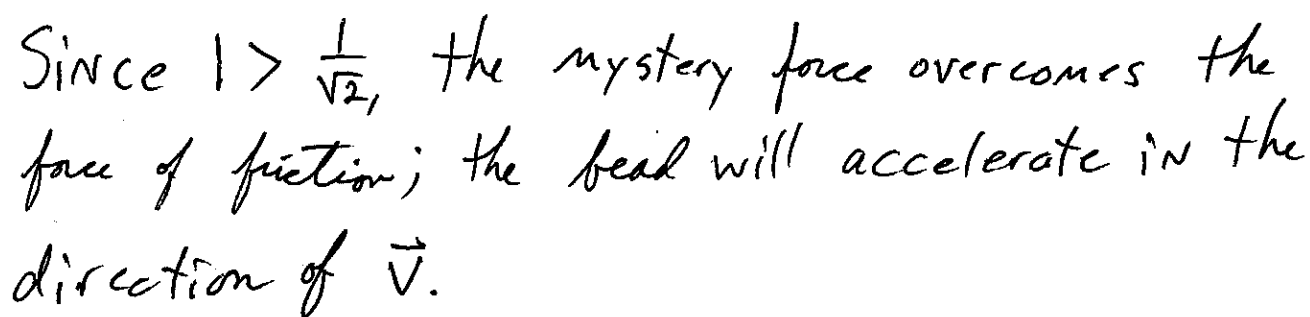 Since 1 > 1/√2, the mystery force overcomes the
force of friction; the bead will accelerate in the
direction of v⃗.